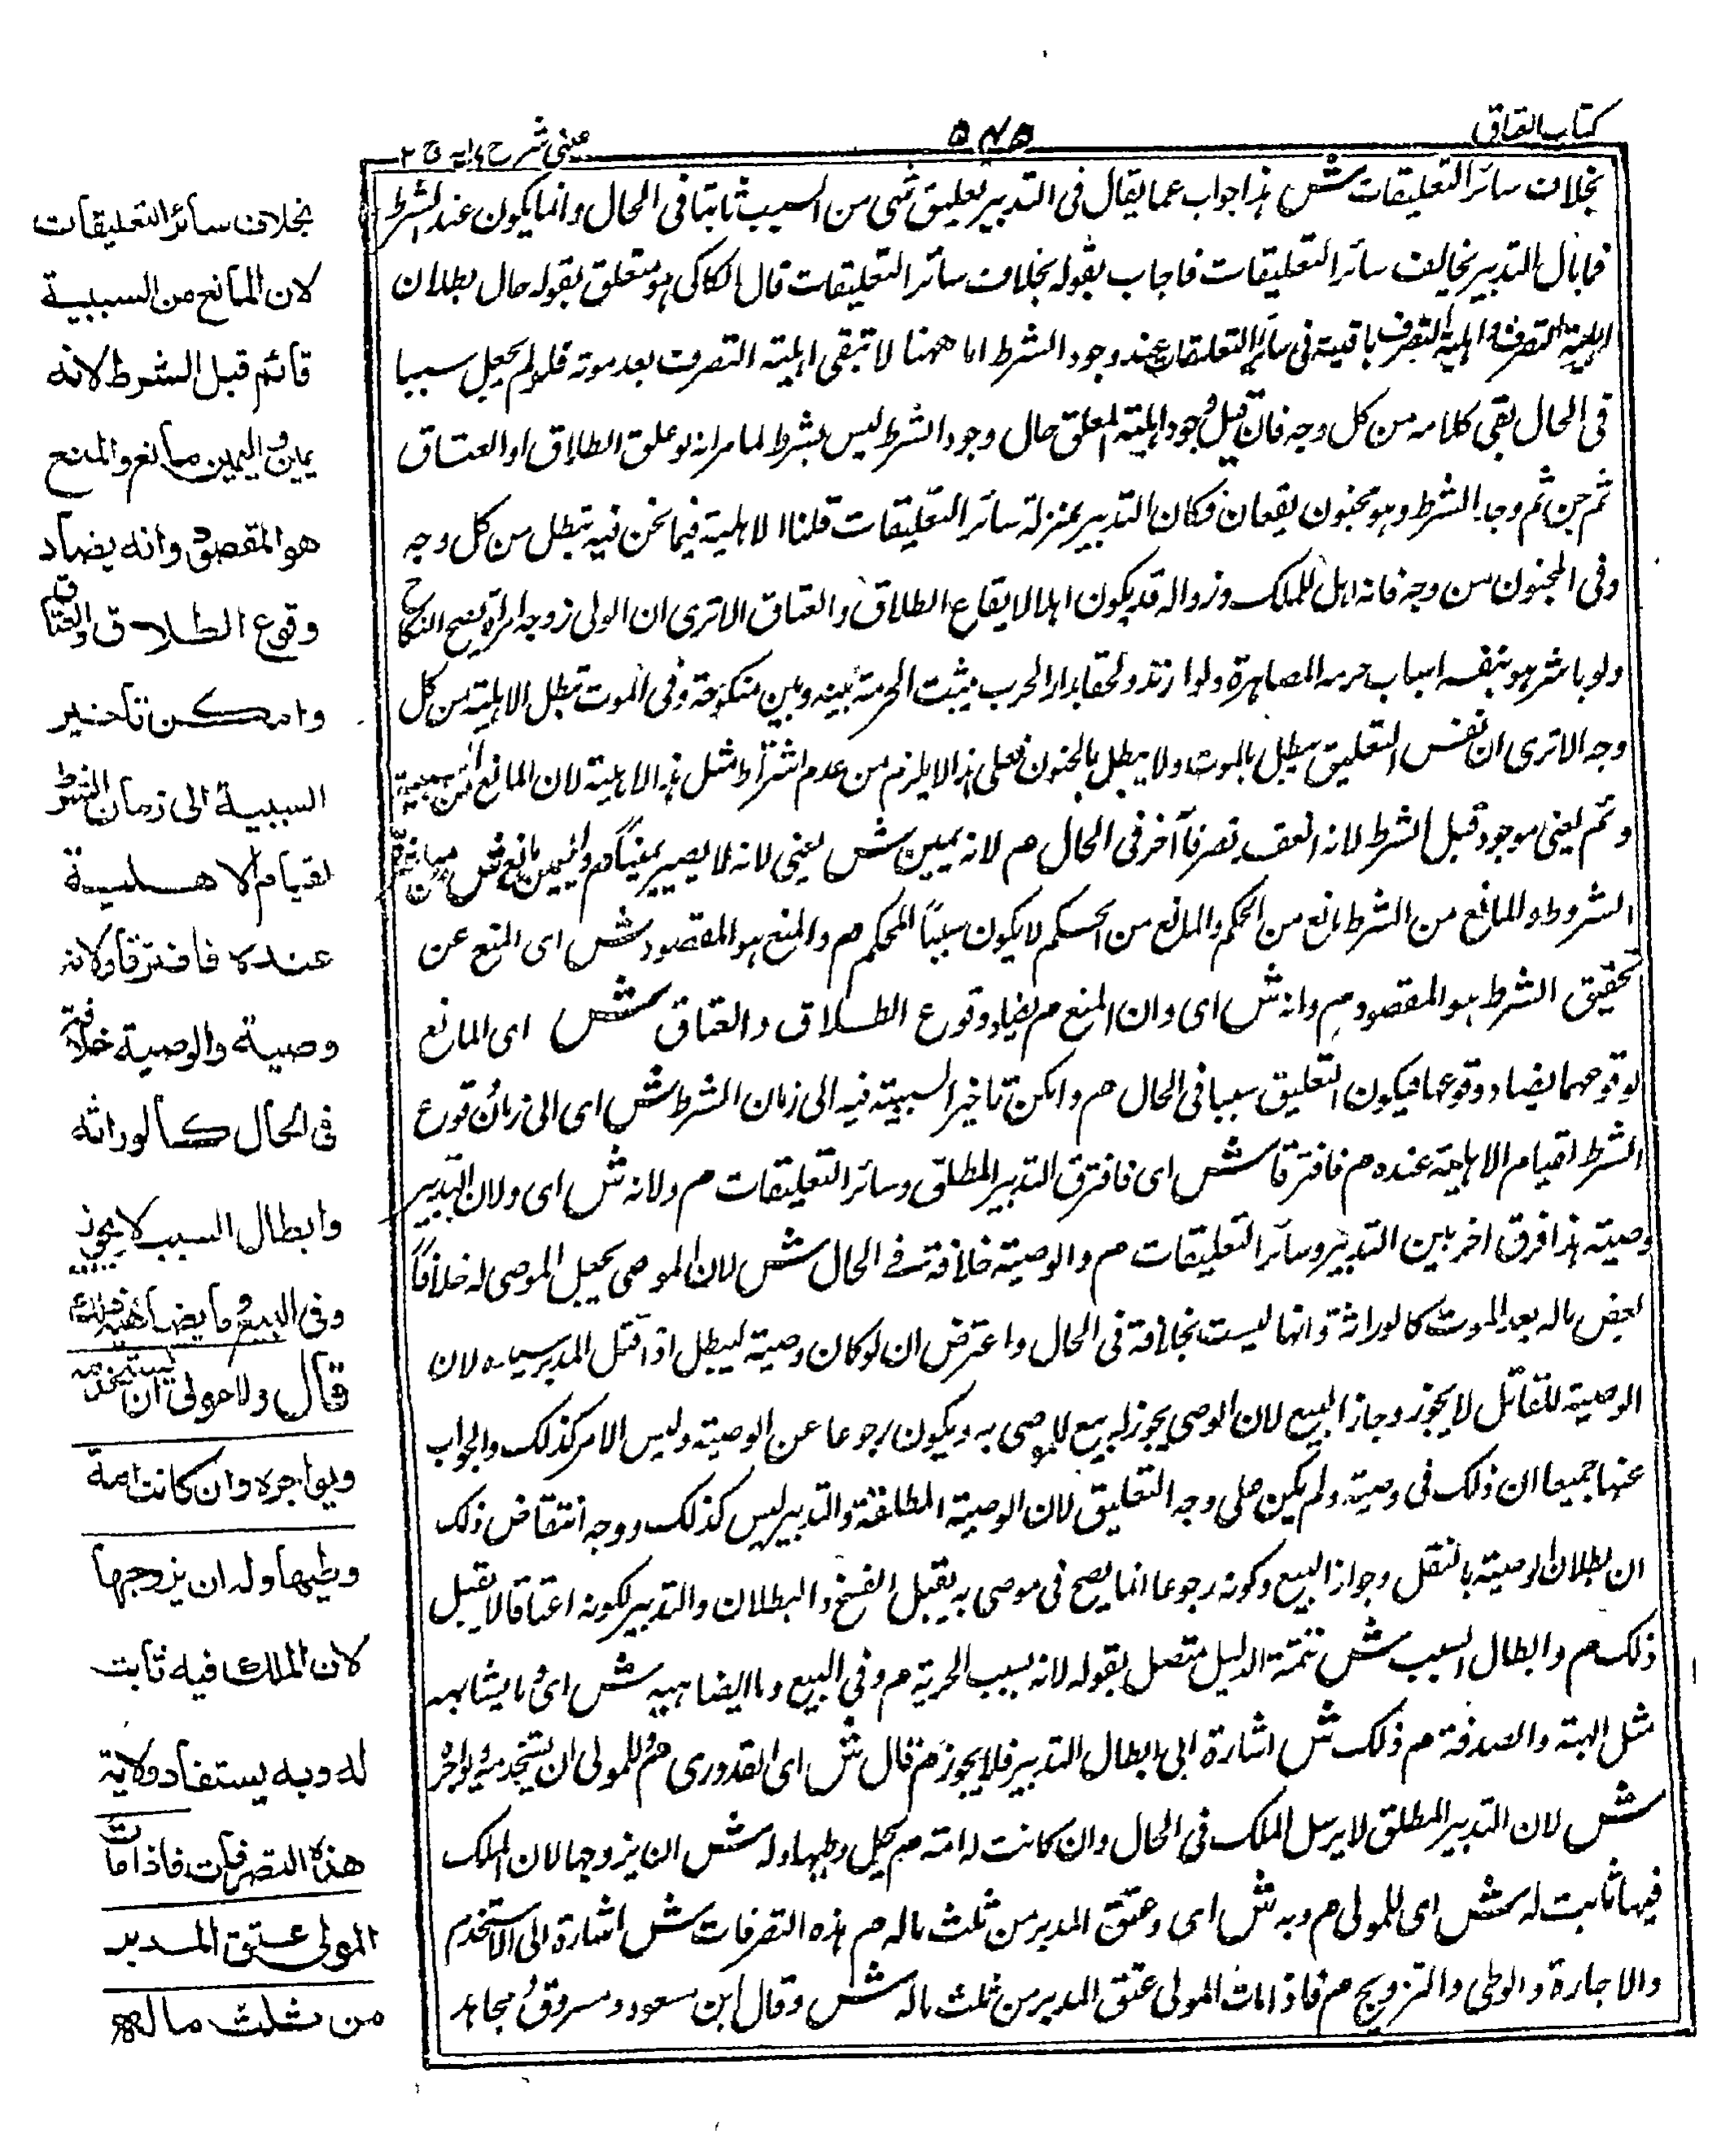 كتاب العتاق
٥٤٥
عينى شرح هدايه ج ٢
بخلاف سائر التعليقات ش هذا جواب عما يقال فى التدبير تعليق شى من السبب ثابتا فى الحال وانما يكون عند الشرط
فما بال التدبير يخالف سائر التعليقات فاجاب بقوله بخلاف سائر التعليقات قال الكاكى هو متعلق بقوله حال بطلان
اهلية التصرف واهلية التصرف باقية فى سائر التعليقات عند وجود الشرط اما ههنا لا تبقى اهلية التصرف بعد موته فلو لم يجعل سببا
فى الحال بقى كلامه من كل وجه فان قيل وجود اهلية المعلق حال وجود الشرط ليس بشرط لما مر انه لو علق الطلاق او العتاق
ثم جن ثم وجد الشرط وهو مجنون يقعان فكان التدبير بمنزلة سائر التعليقات قلنا الاهلية فيما نحن فيه تبطل من كل وجه
وفى المجنون من وجه فانه اهل للملك وزواله قد يكون اهلا لايقاع الطلاق والعتاق الا ترى ان الولى زوجه امرأة يصح النكاح
ولو باشر هو بنفسه اسباب حرمة المصاهرة ولو ارتد ولحقا بدار الحرب يثبت الحرمة بينه وبين منكوحة وفى الموت تبطل الاهلية من كل
وجه الا ترى ان نفس التعليق يبطل بالموت ولا يبطل بالجنون فعلى هذا لا يلزم من عدم اشتراط مثل هذا الاهلية لان المانع من السببية
و ثم يعنى موجود قبل الشرط لانه انعقد تصرفا آخر فى الحال م لانه يمين ش يعنى لانه لا يصير يمينا م واليمين مانع ش
الشروط والمانع من الشرط مانع من الحكم والمانع من الحكم لا يكون سببا للحكم م والمنع هو المقصود ش اى المنع عن
تحقيق الشرط هو المقصود م وانه ش اى وان المنع م يضاد وقوع الطلاق والعتاق ش اى المانع
لوقوعهما يضاد وقوعهما فيكون التعليق سببا فى الحال م وامكن تاخير السببية فيه الى زمان الشرط ش اى الى زمان وقوع
الشرط لقيام الاهلية عنده م فافترقا ش اى فافترق التدبير المطلق وسائر التعليقات م ولانه ش اى ولان التدبير
وصية هذا فرق اخر بين التدبير وسائر التعليقات م والوصية خلافة فى الحال ش لان الموصى يجعل الموصى له خلافا
لبعض ماله بعد الموت كالوراثة وانها ليست بخلافة فى الحال واعترض ان لو كان وصية ليبطل اذا قتل المدبر سيده لان
الوصية للقاتل لا يجوز وجاز البيع لان الوصى يجوز له بيع الموصى به ويكون رجوعا عن الوصية وليس الامر كذلك والجواب
عنها جميعا ان ذلك فى وصية ولم يكن على وجه التعليق لان الوصية المطلقة والتدبير ليس كذلك ووجه انتقاض ذلك
ان بطلان الوصية بالقتل وجواز البيع وكونه رجوعا انما يصح فى موصى به يقبل الفسخ والبطلان والتدبير لكونه اعتاقا لا يقبل
ذلك م وابطال السبب ش تتمة الدليل متصل بقوله لانه سبب الحرية م وفى البيع وما يضاهيه ش اى ما يشابهه
مثل الهبة والصدقة م ذلك ش اشارة الى ابطال التدبير فلا يجوز م قال ش اى القدورى م وللمولى ان يستخدمه ويواجره
ش لان التدبير المطلق لا يزيل الملك فى الحال وان كانت له امة م يحل وطيها وله ش ان يزوجها لان الملك
فيها ثابت له ش اى للمولى م وبه ش اى وعتق المدبر من ثلث ماله م هذه التصرفات ش اشارة الى الاستخدام
والاجارة والوطى والتزويج م فاذا مات المولى عتق المدبر من ثلث ماله ش وقال ابن مسعود ومسروق ومجاهد
بخلاف سائر التعليقات
لان المانع من السببية
قائم قبل الشرط لانه
يمين واليمين مانع والمنع
هو المقصود وانه يضاد
وقوع الطلاق والعتاق
وامكن تاخير
السببية الى زمان الشرط
لقيام الاهلية
عنده فافترقا ولانه
وصية والوصية خلافة
فى الحال كالوراثة
وابطال السبب لا يجوز
وفى البيع وما يضاهيه ذلك
قال وللمولى ان يستخدمه
ويواجره وان كانت امة
وطيها وله ان يزوجها
لان الملك فيه ثابت
له وبه يستفاد ولاية
هذه التصرفات فاذا مات
المولى عتق المدبر
من ثلث ماله